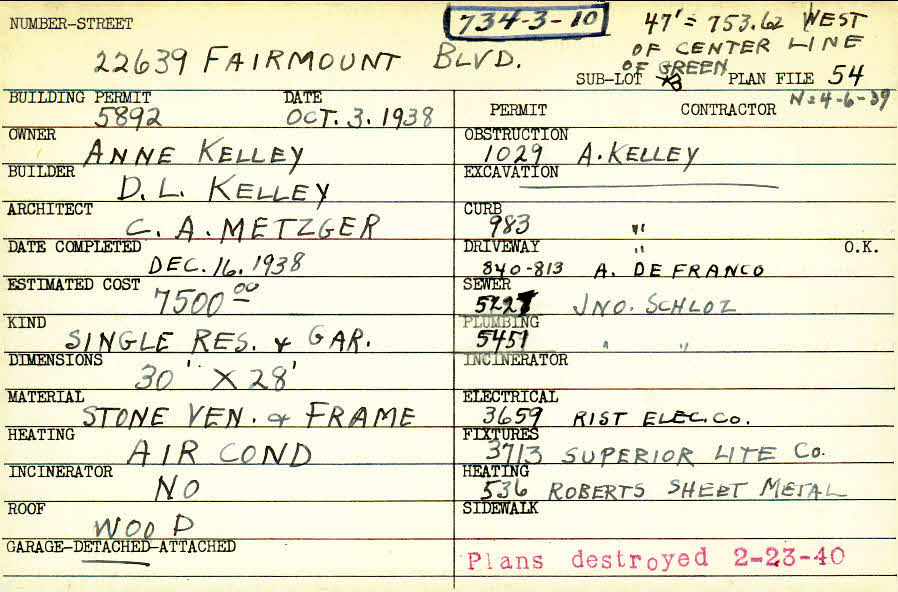 NUMBER-STREET
734-3-10
47' = 753.62 WEST
OF CENTER LINE
OF GREEN
22639 FAIRMOUNT BLVD.
SUB-LOT PLAN FILE 54
BUILDING PERMIT DATE
5892 OCT. 3. 1938
PERMIT CONTRACTOR N=4-6-39
OWNER
ANNE KELLEY
OBSTRUCTION
1029 A. KELLEY
BUILDER
D. L. KELLEY
EXCAVATION
ARCHITECT
C. A. METZGER
CURB
983 "
DATE COMPLETED
DEC. 16. 1938
DRIVEWAY " O.K.
840-813 A. DE FRANCO
ESTIMATED COST
7500 00
SEWER
JNO. SCHLOZ
KIND
SINGLE RES. & GAR.
PLUMBING
5451 " "
DIMENSIONS
30' X 28'
INCINERATOR
MATERIAL
STONE VEN. & FRAME
ELECTRICAL
3659 RIST ELEC. CO.
HEATING
AIR COND
FIXTURES
3713 SUPERIOR LITE CO.
INCINERATOR
NO
HEATING
536 ROBERTS SHEET METAL
ROOF
WOOD
SIDEWALK
GARAGE-DETACHED-ATTACHED
Plans destroyed 2-23-40